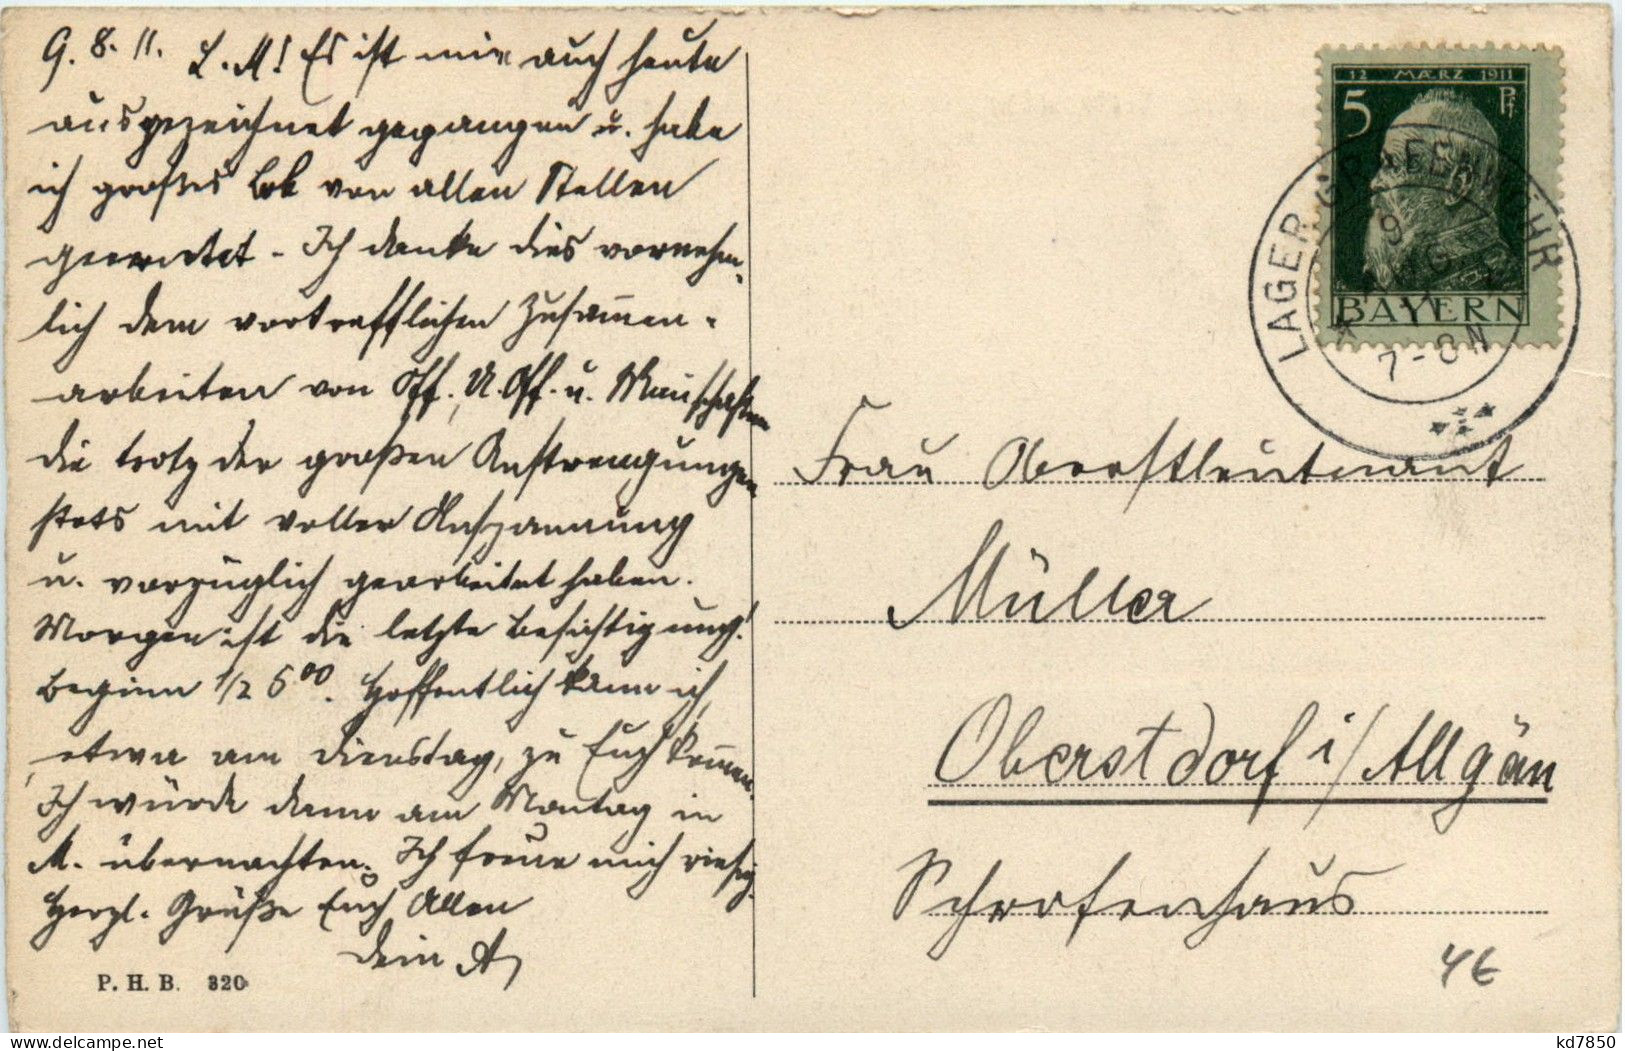 9. 8. 11. L. M! Es ist mir auch heute
ausgezeichnet gegangen u. habe
ich großes Lob von allen Stellen
geerntet - Ich danke dies vornehm-
lich dem vortrefflichen Zusammen-
arbeiten von Off., U. Off. u. Mannschaften
die trotz der großen Anstrengungen
stets mit voller Anspannung
u. vorzüglich gearbeitet haben.
Morgen ist die letzte Besichtigung!
Beginn 1/2 6⁰⁰. Hoffentlich kann ich
etwa am Dienstag, zu Euch kommen.
Ich würde dann am Montag in
M. übernachten. Ich freue mich riesig.
Herzl. Grüße Euch Allen
Dein A
P. H. B. 320
12 MÆRZ 1911
5 Pf
BAYERN
LAGER GRAFENWÖHR
9 AUG
7-8 N
Frau Oberstleutnant
Müller
Oberstdorf i/Allgäu
Schrofenhaus
4€
kd7850